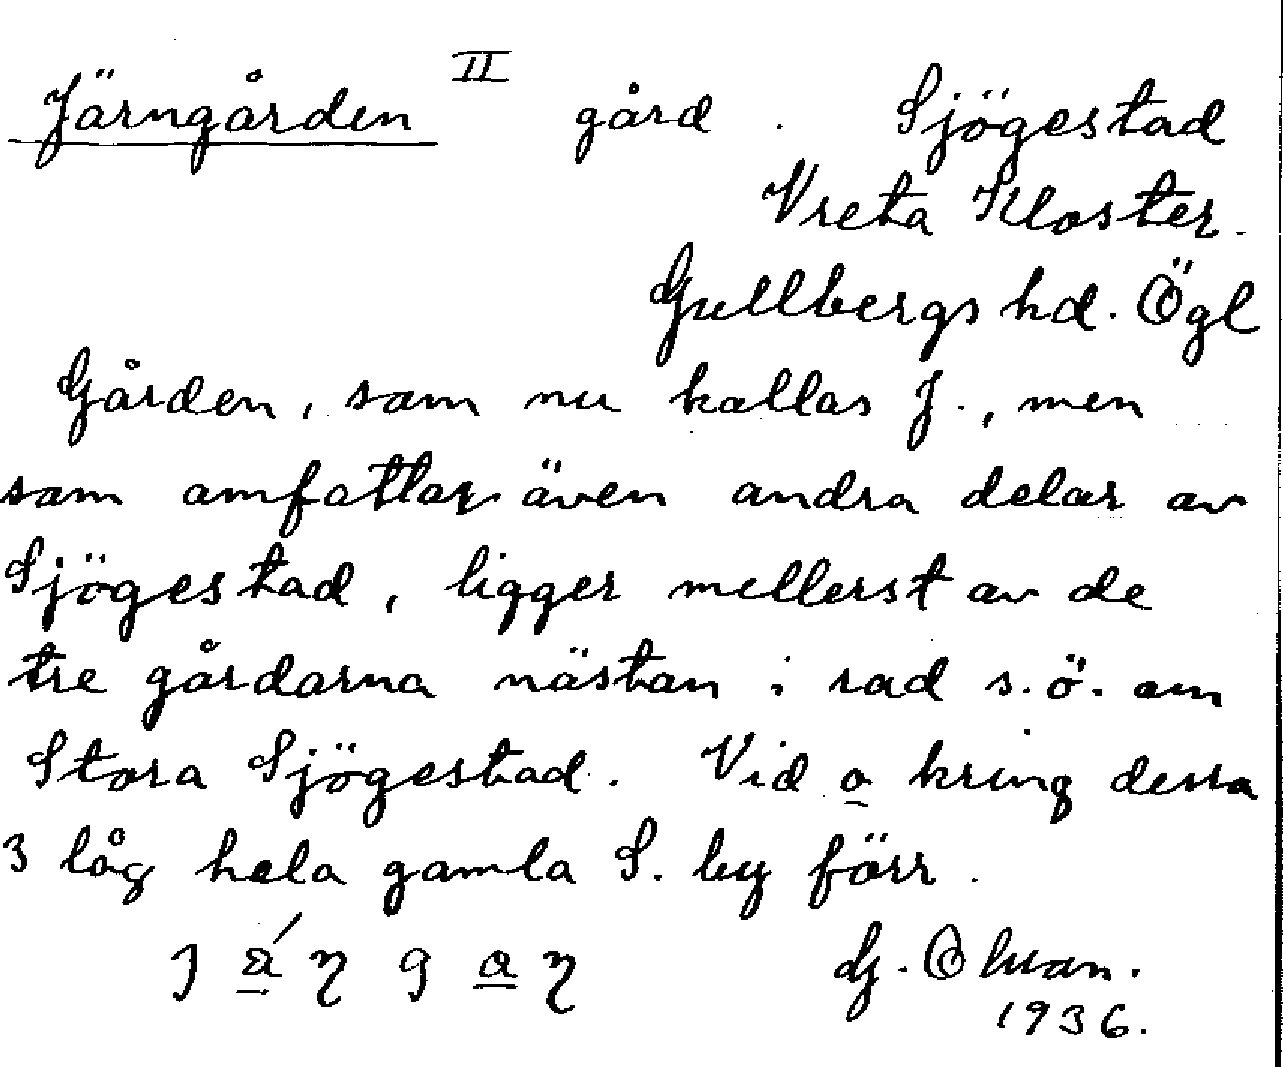 Järngården II gård. Sjögestad
Vreta Kloster.
Gullbergs hd. Ögl
Gården, som nu kallas J., men
som omfattar även andra delar av
Sjögestad, ligger mellerst av de
tre gårdarna nästan i rad s.ö. om
Stora Sjögestad. Vid o kring dessa
3 låg hela gamla S. by förr.
G.
1936.